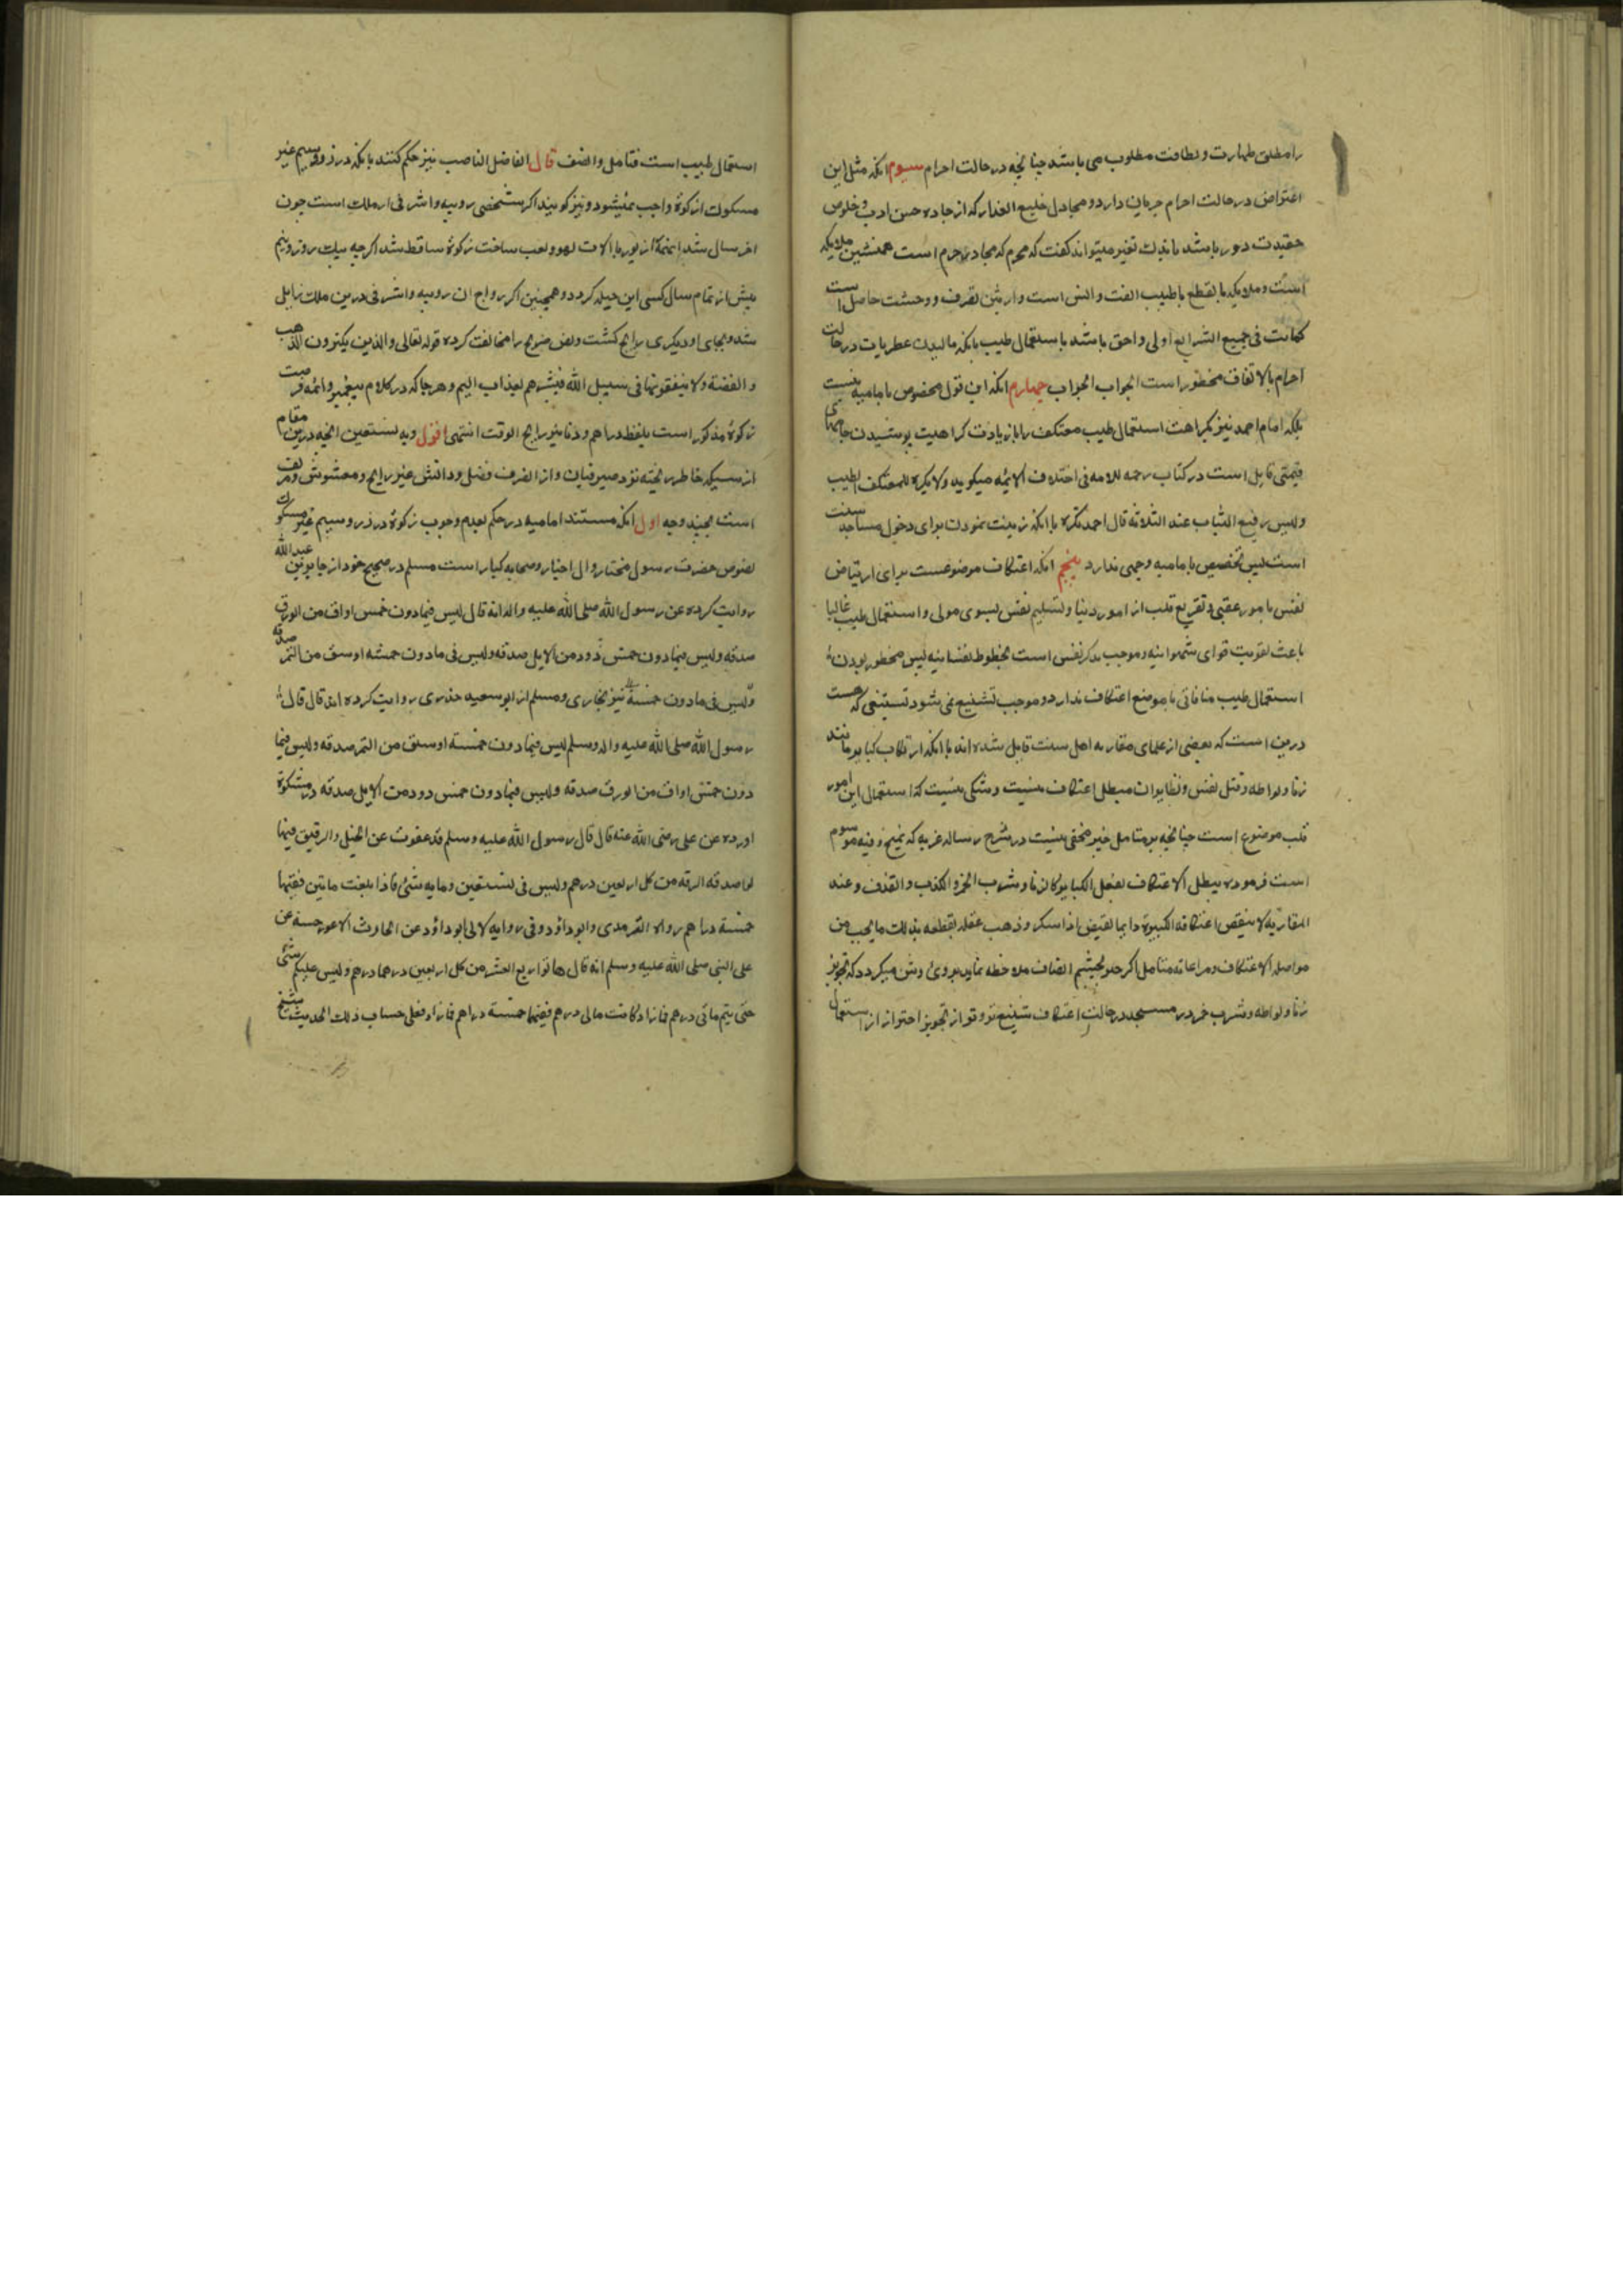 را مطلق طهارت و نظافت مطلوب می باشد چنانچه در حالت احرام سیوم انکه مثل این
اعتراض در حالت احرام جریان دارد و مجادل خلیع العذار که از جاده حسن ادب و خلوص
عقیدت دور باشد باندک تغیر میتواند کفت که محرم که مجاور حرم است همنشین ملایکه
است و ملایکه بالقطع با طیب الفت و انس است و از نتن تفرف و وحشت حاصل است
کمانت فی جمیع الشرایع اولی و احق باشد باستعمال طیب بانکه مالیدن عطریات در حالت
احرام بالاتفاق محظور است الجواب الجواب چهارم انکه این قول مخصوص بامامیه نیست
بلکه امام احمد نیز بکراهت استعمال طیب معتکف را با زیادت کراهیت پوشیدن جامهای
قیمتی قایل است در کتاب رحمه للامه فی اختلاف الایمه میکوید ولا یکره للمعتکف الطیب
ولبس رفیع الثیاب عند الثلاثه قال احمد یکره با انکه زینت نمودن برای دخول مساجد سنت
است پس تخصیص بامامیه وجهی ندارد پنجم انکه اعتکاف موضوعست برای ارتیاض
نفس بامور عقبی و تفریع قلب از امور دنیا و تسلیم نفس بسوی مولی و استعمال طیب غالبا
باعث تقویت قوای شهوانیه و موجب تذکر نفس است بحظوظ نفسانیه پس محظور بودن
استعمال طیب منافاتی با موضع اعتکاف ندارد و موجب تشنیع نمی شود تشنیعی که هست
درین است که بعضی از علمای مغاربه اهل سنت قایل شده اند با انکه ارتکاب کبایر مانند
زنا و لواطه و قتل نفس و نظایر ان مبطل اعتکاف نیست و شکی نیست که استعمال این امور
قلب موضوع است چنانچه بر متامل خبیر مخفی نیست در شرح رساله غریه که بمنح وفیه موسوم
است فرموده یبطل الاعتکاف بفعل الکبایر کالزنا و شرب الخمر و الکذب و القذف و عند
المغاربه لا ینقص اعتکافه الکبیرة دایما لقیض اذا سکر و ذهب عقله لقطعه بذلک ما یجب من
مواصله الاعتکاف و مراعاته متامل اکر جلو بچشم انصاف ملاحظه نماید بروی روشن میکردد که تجویز
زنا و لواطه و شرب خمر در مسجد در حالت اعتکاف شنیع تر و تو از تجویز احتراز از استعمال
استعمال طیب است فتامل وانصف قال الفاضل الناصب نیز حکم کنند بانکه در زر و سیم غیر
مسکوک زکوة واجب نمیشود و نیز کویند اکر شخصی روپیه و اشرفی را مالک است چون
اخر سال شد انهمه را زیور یا الات لهو و لعب ساخت زکوة ساقط شد اکرچه یک روز و نیم
پیش از تمام سال کسی این حیله کردد و همچنین اکر رواج ان روپیه و اشرفی درین ملک زایل
شد و بجای او دیکری رایج کشت و نص صریح را مخالفت کرده قوله تعالی والذین یکنزون الذهب
والفضة ولا ینفقونها فی سبیل الله فبشرهم بعذاب الیم و هر جا که در کلام پیغمبر و ائمه فرضیت
زکوة مذکور است بلفظ دراهم و دنانیر رایج الوقت انتهی اقول وبه نستعین انچه درین مقام
از سبیکه خاطر ریخته نزد صیرفیان وازالضرف فضل و دانش غیر رایج و مغشوش و مزیف
است بچند وجه اول انکه مستند امامیه در حکم بعدم وجوب زکوة در زر و سیم غیر مسکوک
نصوص حضرت رسول مختار و ال اخیار و صحابه کبار است مسلم در صحیح خود از جابر بن عبدالله
روایت کرده عن رسول الله صلی الله علیه واله انه قال لیس فیما دون خمس اواق من الورق
صدقه ولیس فیما دون خمس ذود من الابل صدقه ولیس فی مادون خمسه اوسق من التمر صدقه
ولیس فی مادون خمسة نیز بخاری و مسلم از ابو سعید خدری روایت کرده انه قال قال
رسول الله صلی الله علیه واله وسلم لیس فیما دون خمسته اوسق من التمر صدقه ولیس فیما
دون خمس اواق من الورق صدقه ولیس فیما دون خمس دود من الابل صدقه در مشکوة
اورده عن علی رضی الله عنه قال قال رسول الله علیه وسلم قد عفوت عن الخیل والرقیق فیها
لوا صدقه الرقه من کل اربعین درهم ولیس فی تستعین ومایه شئ فاذا بلغت ماتین ففیها
خمسة دراهم رواه الترمدی وابو داؤد وفی روایه لابی ابو داؤد عن الحارث الاعور حسنه عن
علی النبی صلی الله علیه وسلم انه قال هاتوا ربع العشر من کل اربعین درهما درهم ولیس علیکم شئ
حتی یتم ماتی درهم فاذا کانت ماتی درهم ففیها خمسة دراهم فما زاد فعلی حساب ذلک الحدیث شیخ